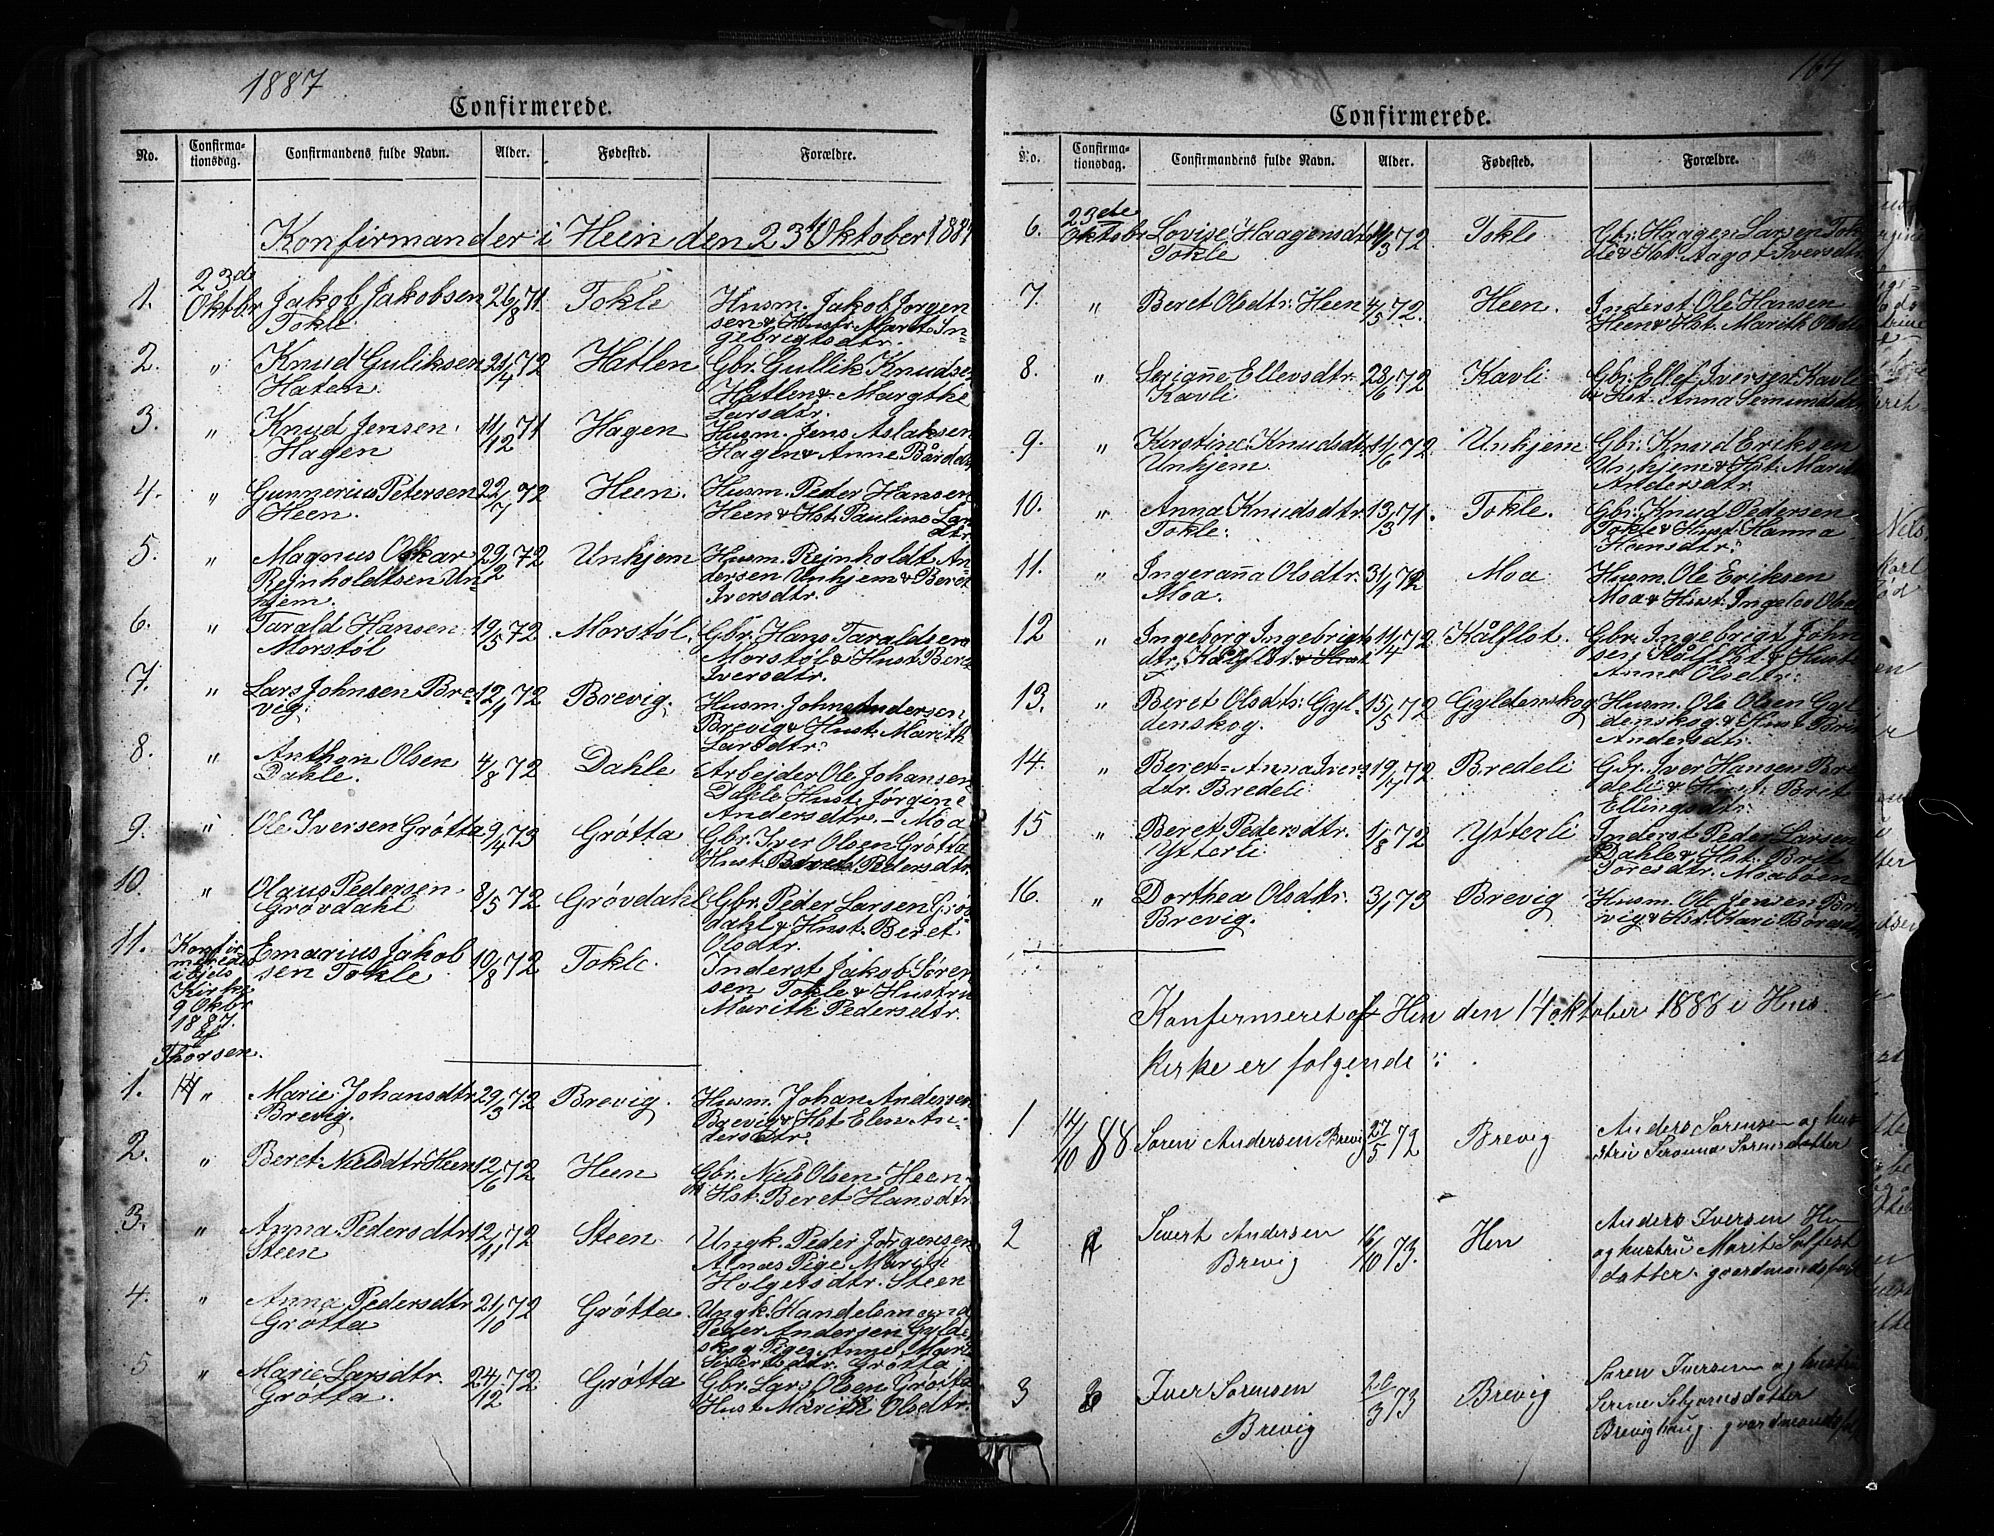 1887
Confirmerede.
No. Confirmationsdag. Confirmandens fulde Navn. Alder. Fødested. Forældre.
Konfirmander i Heen den 23 Oktober 1887
1. 23de Oktbr Jakob Jakobsen 26/8 71 Tokle Husm. Jakob Jørgen
Tokle sen & Hustr. Marit In
gebrigtsdtr.
2. " Knud Guliksen 21/4 72 Hatlen Gbr. Gullik Knudsen
Hatlen. Hatlen & Margthe
Larsdtr.
3. " Knud Jensen 11/12 71 Hagen Husm. Jens Aslaksen
Hagen Hagen & Anne Bårdsdtr
4. " Gunnerius Petersen 22/7 72 Heen. Husm. Peder Hansen
Heen. Heen & Hst. Pauline Lars
dtr.
5. " Magnus Oskar 29/2 72 Unhjem Husm. Reinholdt An
Reinholdtsen Un dersen Unhjem & Beret
hjem. Iversdtr.
6. " Tarald Hansen 19/5 72 Morstøl. Gbr. Hans Taraldsen
Morstøl Morstøl & Hust. Beret
Iversdtr.
7. " Lars Johnsen Bre- 12/1 72 Brevig. Husm. John Andersen
vig. Brevig & Hust. Marith
Larsdtr.
8. " Anthon Olsen 4/8 72 Dahle Arbejder Ole Johansen
Dahle. Dahle Hust. Jørgine
Andersdtr. - Moa
9. " Ole Iversen Grøtta 9/4 73 Grøtta Gbr. Iver Olsen Grøtta
Hust. Beret Pedersdtr.
10. " Olaus Pedersen 8/5 72 Grøvdahl Gbr. Peder Larsen Grøv
Grøvdahl dahl & Hust. Beret
Olsdtr.
11. Konfirmeredes i Kirke 9 Oktbr 1887. af Thorsen. Emarius Jakob 10/8 72 Tokle. Inderst Jakob Søren
sen Tokle sen Tokle & Hustru
Marith Pedersdtr.
1. " Marie Johansdtr 29/3 72 Brevig. Husm. Johan Andersen
Brevig. Brevig & Hst Elen An-
dersdtr.
2. " Beret Nielsdtr Heen 12/6 72 Heen Gbr. Niels Olsen Heen
Hst. Beret Hansdtr.
3. " Anna Pedersdtr 12/11 72 Steen Ungk. Peder Jørgensen
Steen Alnæs Pige Marith
Holgersdtr. Steen
4. " Anna Pedersdtr 21/10 72 Grøtta Ungk. Handelsmand
Grøtta Peder Andersen Gylde
skog Pige Anne Marie
Sivertsdtr. Grøtta
5 " Marie Larsdtr. 24/12 72 Grøtta Gbr. Lars Olsen Grøtta
Grøtta. Hust. Marith Olsdtr.
164
Confirmerede.
No. Confirmationsdag. Confirmandens fulde Navn. Alder. Fødested. Forældre.
6. 23de Oktobr Lovise Haagensdtr 72 Tokle Gbr. Haagen Larsen Tok
Tokle le & Hst. Aagot Iversdtr.
7. " Beret Olsdtr. Heen 4/5 72. Heen. Inderst Ole Hansen
Heen & Hst. Marith Olsd
8. " Serianne Ellevsdtr. 28/6 72 Kavli Gbr. Ellef Iversen Kavli
Kavli & Hst. Anna Semundsdtr
9. " Kirstine Knudsdtr 72. Unhjem Gbr. Knud Eriksen
Unhjem. Unhjem & Hst. Marit
Andersdtr.
10. " Anna Knudsdtr. 13/3 71. Tokle. Gbr. Knud Pedersen
Tokle. Tokle & Hust. Hanna
Hansdtr.
11. " Ingeranna Olsdtr. 31/1 72 Moa Husm. Ole Eriksen
Moa. Moa & Hust. Ingelev Ols
12 " Ingeborg Ingebrigts 11/4 72. Kålflot. Gbr. Ingebrigt John
dtr. Kålflot. & Hust sen Kålflot & Hust
Anne Olsdtr.
13. " Beret Olsdtr. Gyl- 15/5 72 Gyldenskog Husm. Ole Olsen Gyl
denskog. denskog & Hust Brit
Andersdtr.
14. " Beret-Anna Ivers 72. Bredeli Gbr. Iver Hansen Bre
dtr. Bredeli deli & Hust. Brit
Ellingsdtr.
15 " Beret Pedersdtr. 1/8 72 Ytterli Inderst Peder Larsen
Ytterli Dahle & Hst. Brit
Toresdtr. Moaboen
16. " Dorthea Olsdtr. 3/1 73 Brevig Husm. Ole Jensen Bre
Brevig. vig & Hst. Kari
Konfermeret af Hen den 14 oktober 1888 i Hens
kirke er følgende:
1 14/10 88 Søren Andersen Brevig 27/5 72 Brevig Anders Sørensen og hu
stru Serianna Sørensdatter
2 Sivert Andersen 16/10 73. Hen Anders Iversen Hen
Brevig og hustru Marit Solfest
datter gaardmandsfolk
3 Iver Sørensen 73 Brevig Søren Iversen og hustru
Brevig Serine datter
Brevighaug. gaardmandsfolk